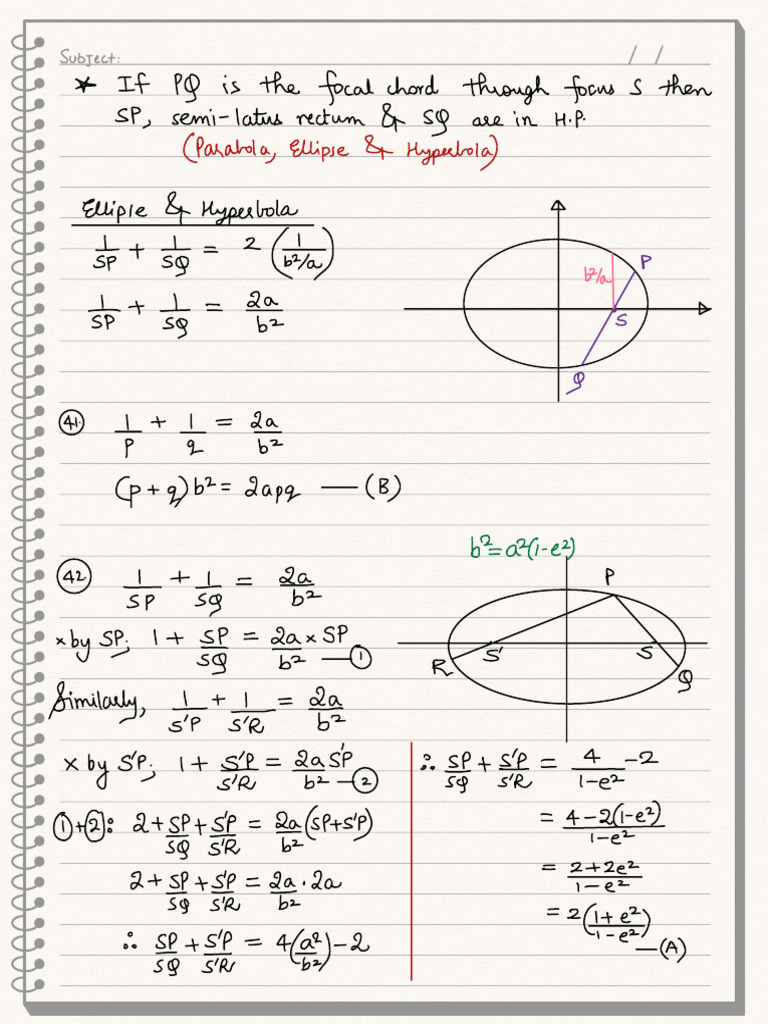 Subject: / /
* If PQ is the focal chord through focus S then
SP, semi-latus rectum & SQ are in H.P.
(Parabola, Ellipse & Hyperbola)
Ellipse & Hyperbola
1/SP + 1/SQ = 2 (1/(b²/a))
1/SP + 1/SQ = 2a/b²
b²/a
P
S
Q
41. 1/p + 1/q = 2a/b²
(p+q)b² = 2apq — (B)
b² = a²(1-e²)
42 1/SP + 1/SQ = 2a/b²
P
S'
S
R
Q
× by SP; 1 + SP/SQ = 2a/b² × SP — ①
Similarly, 1/S'P + 1/S'R = 2a/b²
× by S'P; 1 + S'P/S'R = 2a S'P/b² — ②
①+②: 2 + SP/SQ + S'P/S'R = 2a/b² (SP+S'P)
2 + SP/SQ + S'P/S'R = 2a/b² · 2a
∴ SP/SQ + S'P/S'R = 4(a²/b²) - 2
∴ SP/SQ + S'P/S'R = 4/(1-e²) - 2
= (4-2(1-e²))/(1-e²)
= (2+2e²)/(1-e²)
= 2((1+e²)/(1-e²)) — (A)